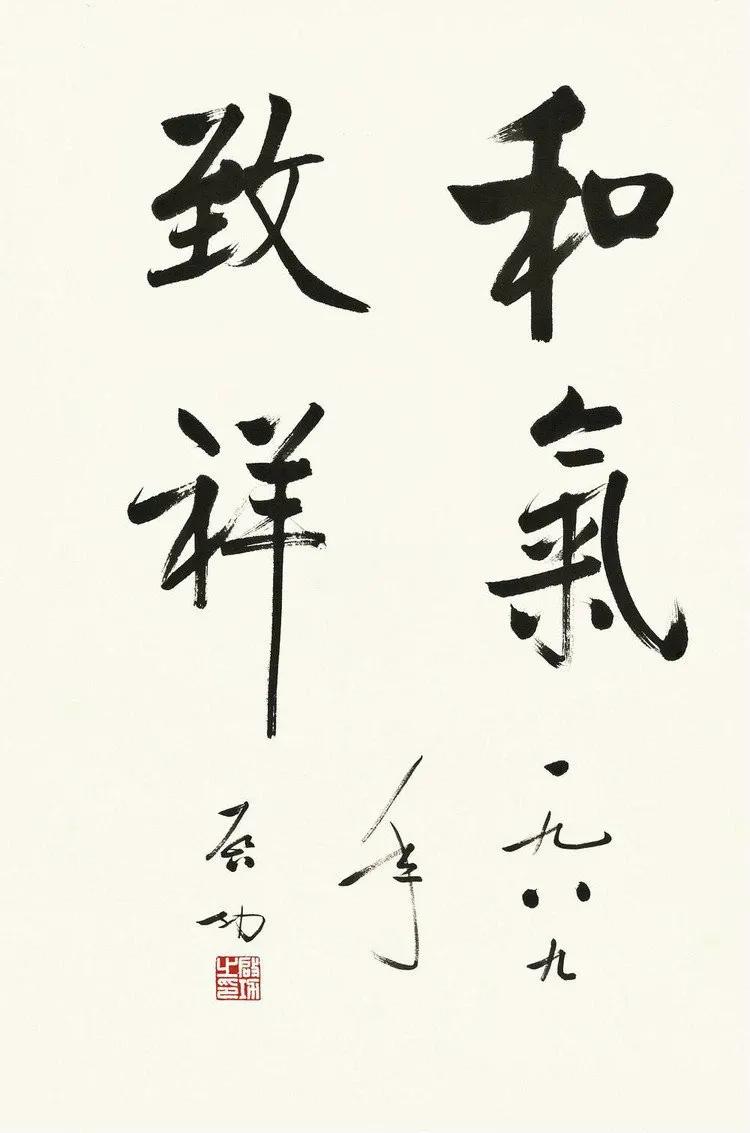 和氣
致祥
一九八九
年
启功
啟功之印